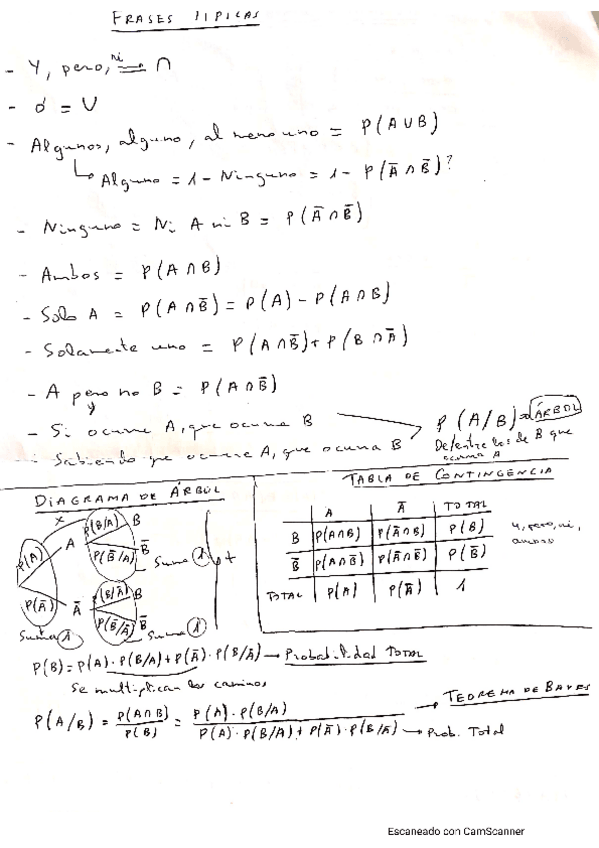 FRASES TIPICAS
- Y, pero, ni = ∩
- ó = ∪
- Algunos, alguno, al meno uno = P(A∪B)
↳ Alguno = 1 - Ninguno = 1 - P(Ā∩B̄)?
- Ninguno = Ni A ni B = P(Ā∩B̄)
- Ambos = P(A∩B)
- Solo A = P(A∩B̄) = P(A) - P(A∩B)
- Solamente uno = P(A∩B̄) + P(B∩Ā)
- A pero no B = P(A∩B̄)
y
- Si ocurre A, que ocurra B
- Sabiendo que ocurre A, que ocurra B
P(A/B) → ÁRBOL
De entre los de B que
ocurra A
DIAGRAMA DE ÁRBOL
x
P(A) A P(B/A) B
P(B̄/A) B̄
Suma 1
+
P(Ā) Ā P(B/Ā) B
P(B̄/Ā) B̄
Suma 1
Suma 1
TABLA DE CONTINGENCIA
A Ā TOTAL
B P(A∩B) P(Ā∩B) P(B)
B̄ P(A∩B̄) P(Ā∩B̄) P(B̄)
TOTAL P(A) P(Ā) 1
y, pero, ni,
ambos
P(B) = P(A)·P(B/A) + P(Ā)·P(B/Ā) → Probabilidad TOTAL
Se multiplican los caminos
P(A/B) = P(A∩B) / P(B) = P(A)·P(B/A) / P(A)·P(B/A) + P(Ā)·P(B/Ā) → Prob. Total
→ TEOREMA DE BAYES
Escaneado con CamScanner